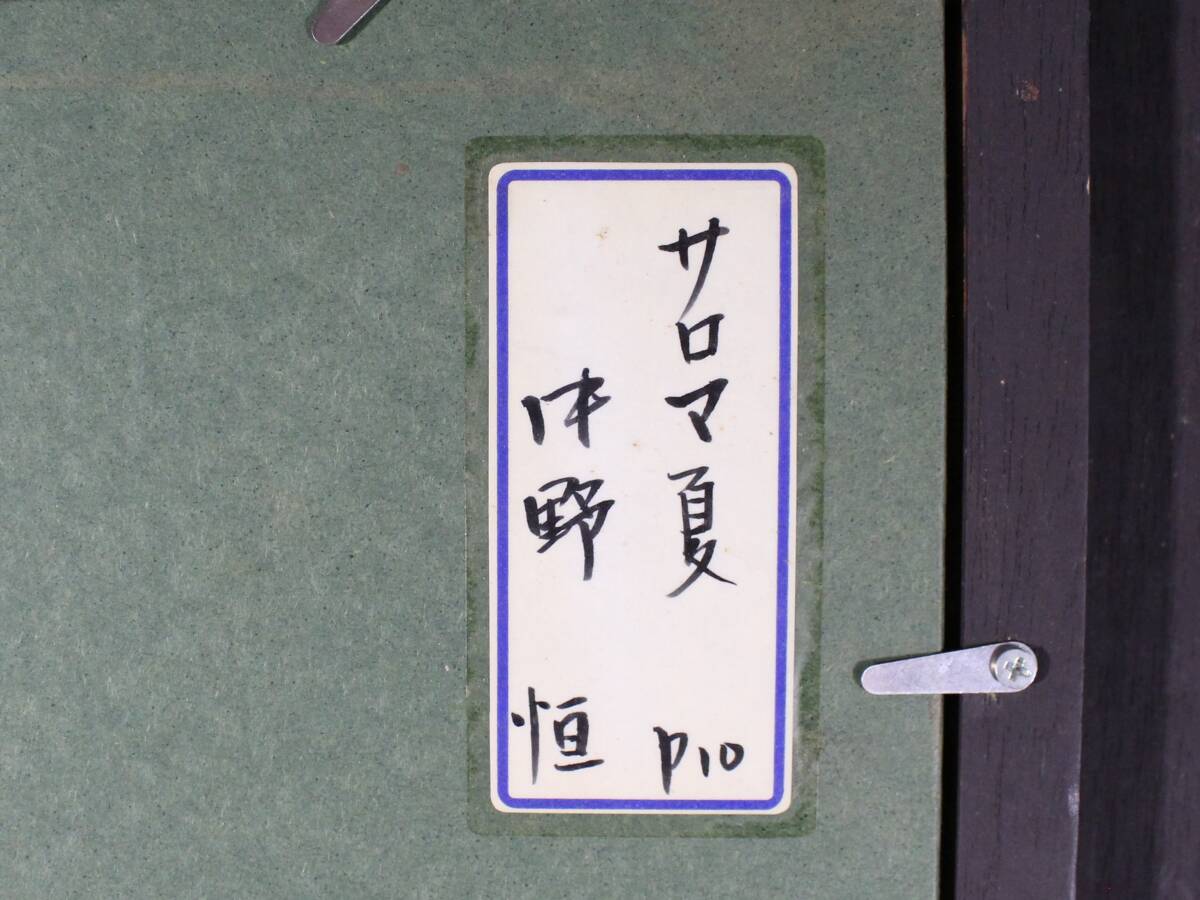 サロマ夏 P10
休野 恒